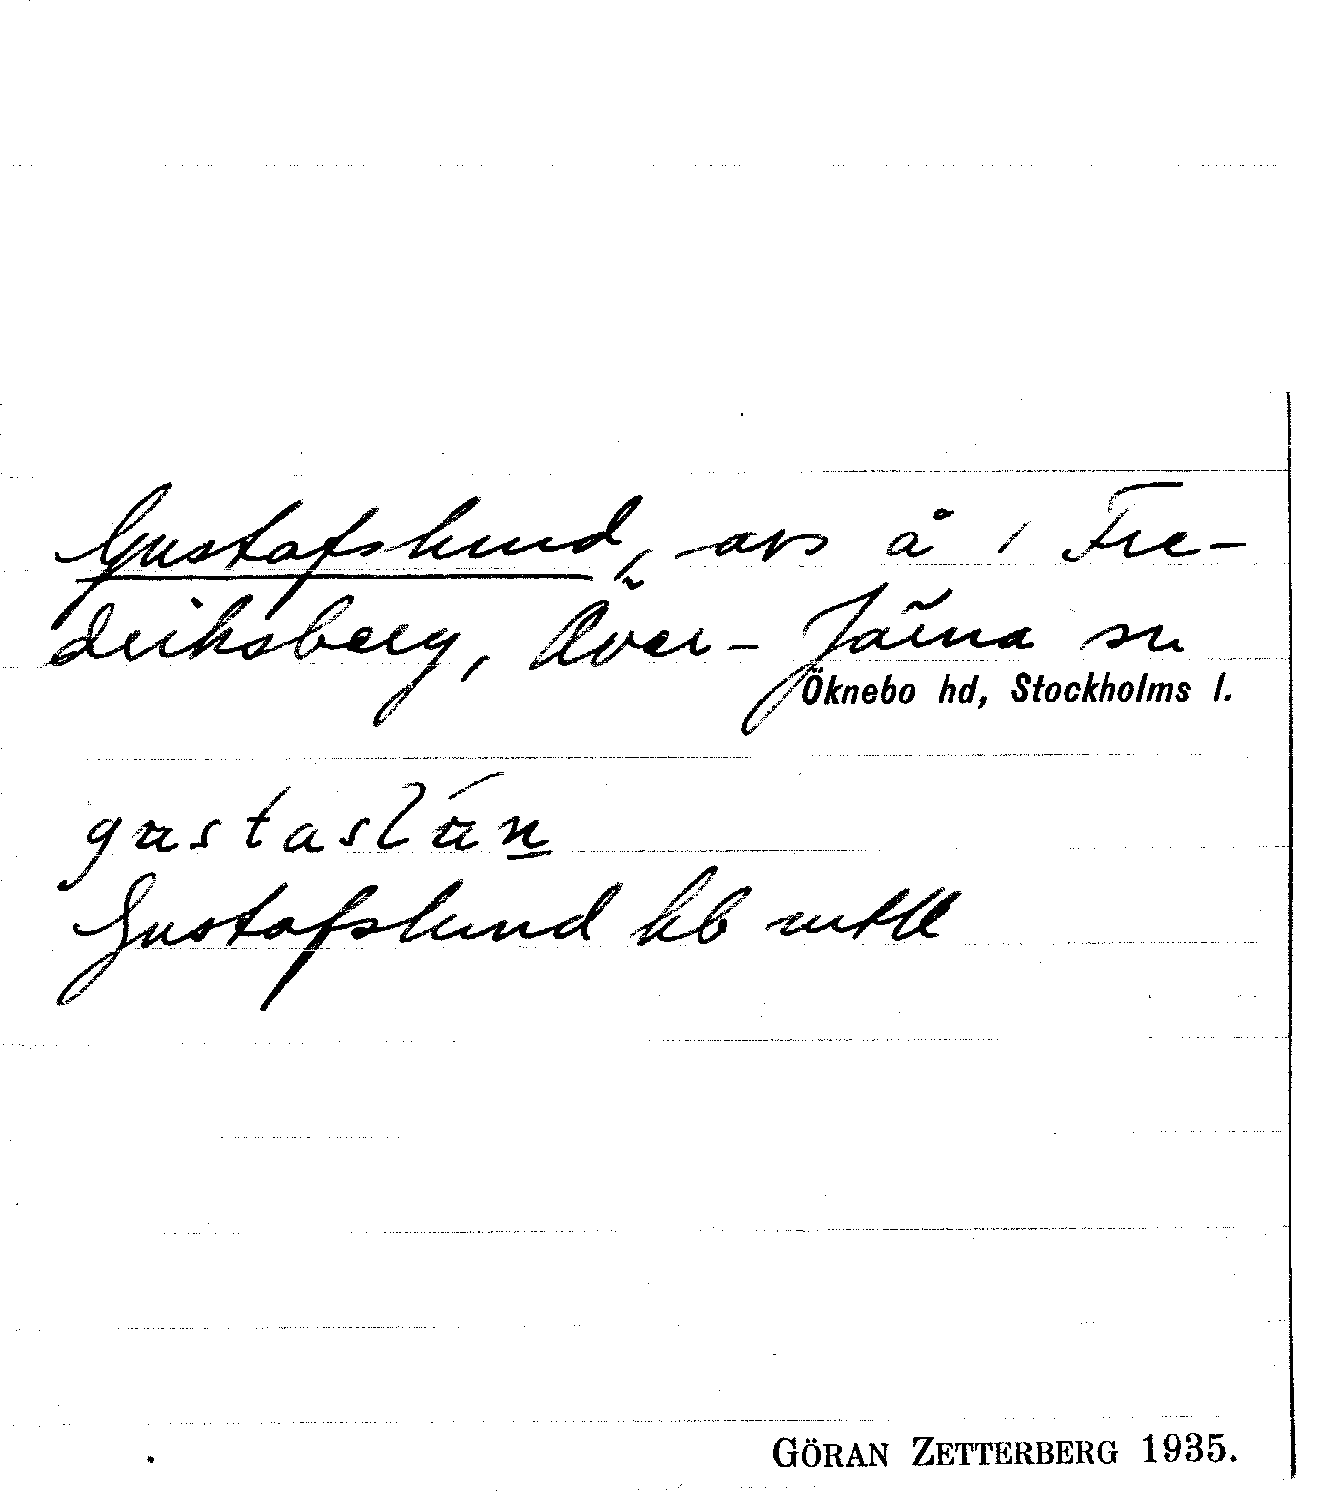 Gustafslund, avs å 1 Fre-
driksberg, Över-Järna sn
Öknebo hd, Stockholms l.
gustaslún
Gustafslund hb
GÖRAN ZETTERBERG 1935.